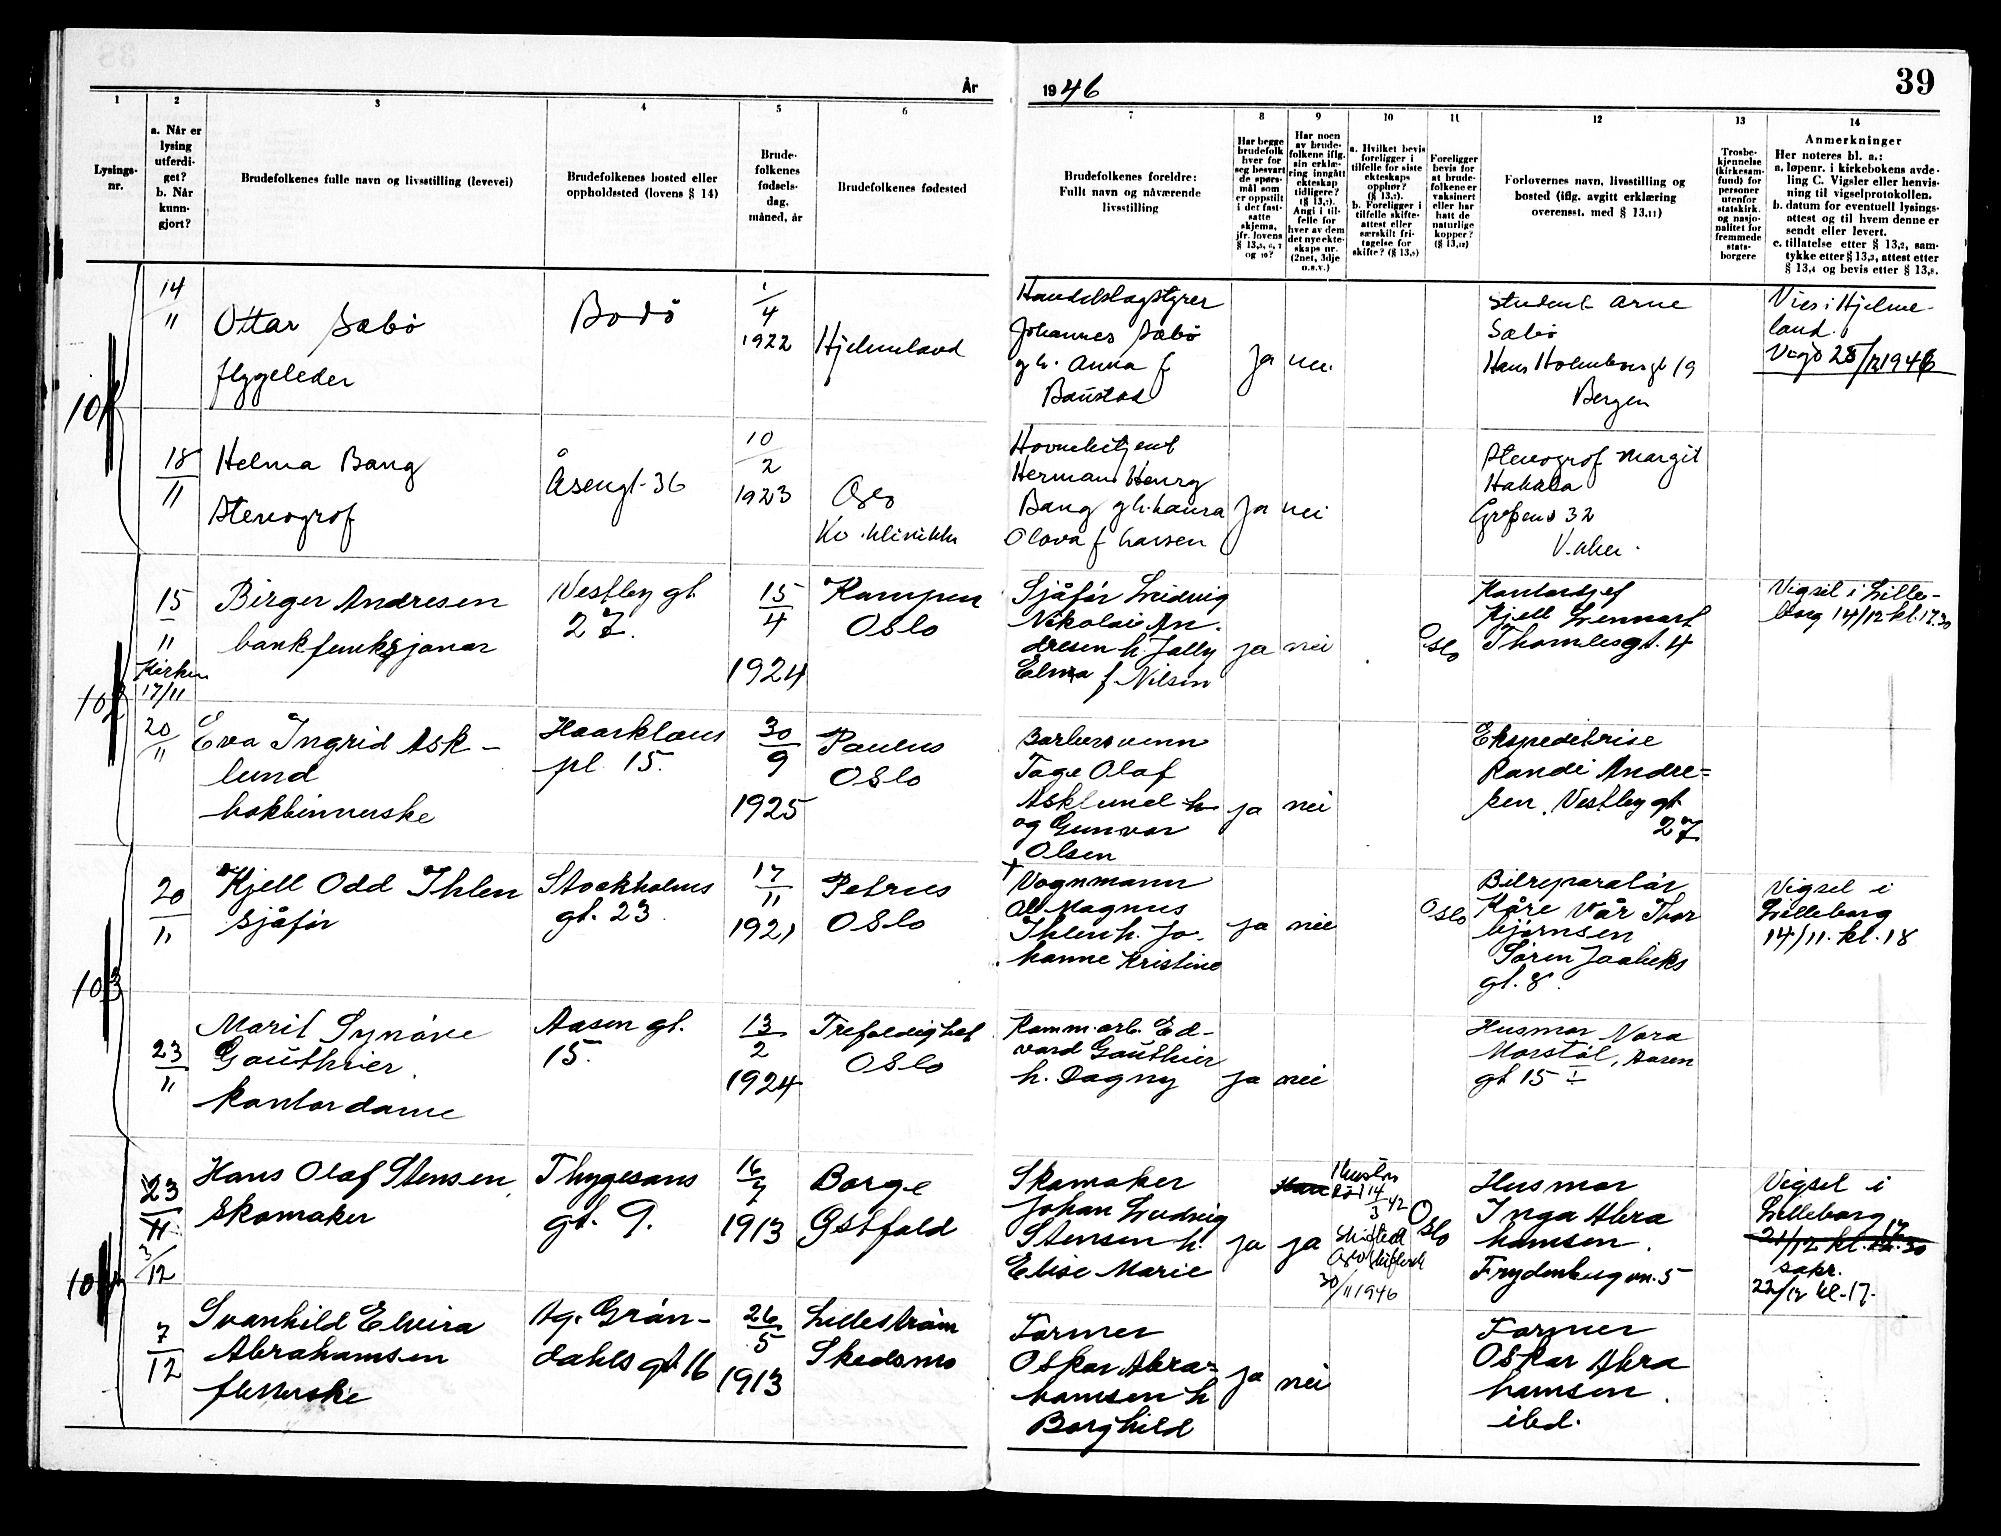 År
1946
39
1
2
3
4
5
6
7
8
9
10
11
12
13
14
Lysings-
nr.
a. Når er
lysing
utferdi-
get?
b. Når
kunn-
gjort?
Brudefolkenes fulle navn og livsstilling (levevei)
Brudefolkenes bosted eller
oppholdssted (lovens § 14)
Brude-
folkenes
fødsels-
dag,
måned, år
Brudefolkenes fødested
Brudefolkenes foreldre:
Fullt navn og nåværende
livsstilling
Har begge
brudefolk
hver for
seg besvart
de spørs-
mål som
er oppstilt
i det fast-
satte
skjema,
jfr. lovens
§ 13,5, 6, 7
og 10?
Har noen
av brude-
folkene iflg.
sin erklæ-
ring inngått
ekteskap
tidligere?
(§ 13,7).
Angi i til-
felle for
hver av dem
det nye ekte-
skaps nr.
(2net, 3dje
o.s.v.)
a. Hvilket bevis
foreligger i
tilfelle for siste
ekteskaps
opphør?
(§ 13,7).
b. Foreligger i
tilfelle skifte-
attest eller
særskilt fri-
tagelse for
skifte? (§ 13,9)
Foreligger
bevis for
at brude-
folkene er
vaksinert
eller har
hatt de
naturlige
kopper?
(§ 13,12)
Forlovernes navn, livsstilling og
bosted (iflg. avgitt erklæring
overensst. med § 13,11)
Trosbe-
kjennelse
(kirkesam-
fund) for
personer
utenfor
statskirk.
og nasjo-
nalitet for
fremmede
stats-
borgere
Anmerkninger
Her noteres bl. a.:
a. løpenr. i kirkebokens avde-
ling C. Vigsler eller henvis-
ning til vigselprotokollen.
b. datum for eventuell lysings-
attest og til hvem denne er
sendt eller levert.
c. tillatelse etter § 13,2, sam-
tykke etter § 13,3, attest etter
§ 13,4 og bevis etter § 13,8.
101
14/11
Ottar Sæbö
flygeleder
Bodö
1/4
1922
Hjelmeland
Handelslagstyrer
Johannes Sæbö
gh. Anna f
Baustad
Ja
nei
Student Arne
Sæbö
Hans Holmboesgt 19
Bergen
Vies i Hjelme-
land.
Vigd 28/12 1946
18/11
Helma Bang
Stenograf
Åsengt. 36
10/2
1923
Oslo
Kv. klinikk
Hovmebetjent
Herman Henry
Bang gh. Laura
Olava f Larsen
Ja
nei
Stenograf Margit
32
V. Aker.
102
15/11
Kirken
17/11
Birger Andresen
bankfunksjonær
Vestby gt.
27.
15/4
1924
Kampen
Oslo
Sjåfør Ludvig
Nikolai An-
dresen h. Jally
Elna f Nilsen
ja
nei
Oslo
Kontorsjef
Kjell Lennart
Thomlesgt. 4
Vigsel i Lille-
borg 14/12 kl. 17.30
20/11
Eva Ingrid Ask-
lund
bokbinnerske
Haarklous
pl. 15.
30/9
1925
Paulus
Oslo
Barbersvenn
Tage Olaf
Asklund h
og Gunvor
Olsen
ja
nei
Ekspeditrise
Randi Andre-
sen, Vestby gt
27
103
20/11
Kjell Odd Ihlen
sjåfør
Stockholms
gt. 23.
17/11
1921
Petrus
Oslo
† Vognmann
Magnus
Ihlen h. Jo-
hanne Kristine
ja
nei
Oslo
Bilreparatør
Kåre Vår Thor
bjørnsen
Søren Jaabeks
gt. 8.
Vigsel i
Lilleborg
14/11. kl. 18
23/11
Marit Synøve
Gauthier.
kontordame
Aasen gt.
15.
13/2
1924
Trefoldighet
Oslo
Komm.arb. Ed-
vard Gauthier
h. Dagny
ja
nei
Husmor Nora
Morstøl, Aasen
gt 15 I
104
23/11
3/12
Hans Olaf Stensen,
skomaker
Thygesøns
gt. 9.
16/7
1913
Borge
Østfold
Skomaker
Johan Ludvig
Stensen h.
Elise Marie
ja
ja
Hustru
død 14/3 42
Skiftet
Oslo skifterett
30/11 1946
Oslo
Husmor
Inga Abra
hamsen.
Frydenbergvn. 5
Vigsel i
Lilleborg
21/12 kl. 17.30
sakr.
22/12 kl. 17.
7/12
Svanhild Elvira
Abrahamsen
fletterske
Ag. Grøn-
dahls gt 16
26/5
1913
Lillestrøm
Skedsmo
Former
Oskar Abra-
hamsen h
Borghild
ja
nei
Former
Oskar Abra
hamsen.
ibd.